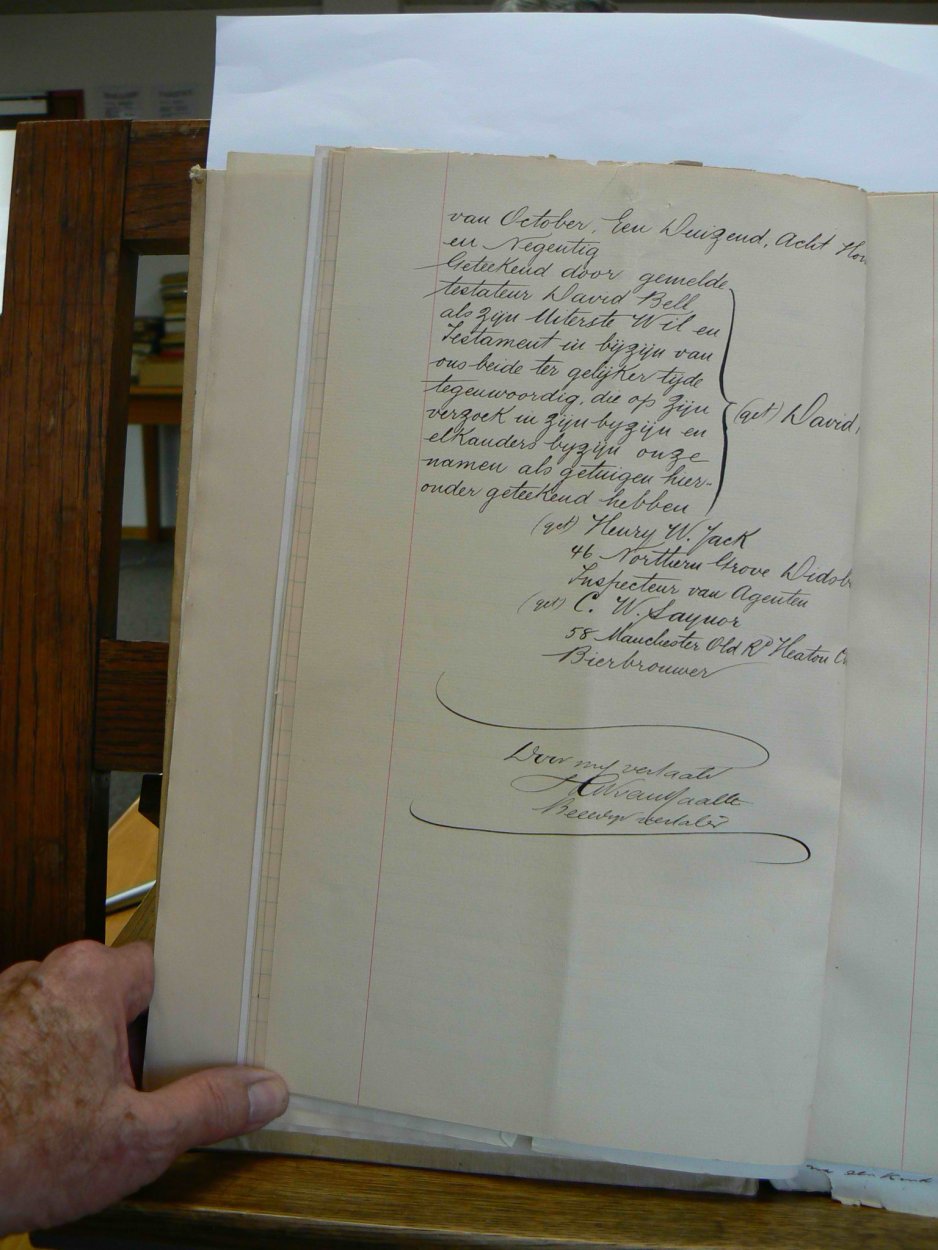 van October, Een Duizend, Acht Hon
en Negentig
Geteekend door gemelde
testateur David Bell
als zijn Uiterste Wil en
Testament in bijzijn van
ons beide ter gelijker tijde
tegenwoordig, die op zijn
verzoek in zijn byzijn en
elkanders byzijn onze
namen als getuigen hier-
onder geteekend hebben
(get) David
(get) Henry W. Jack
46 Northern Grove Didsb
Inspecteur van Agenten
(get) C. W. Saynor
58 Manchester Old Rd Heaton C
Bierbrouwer
Door mij vertaald
Beëedigd vertaler